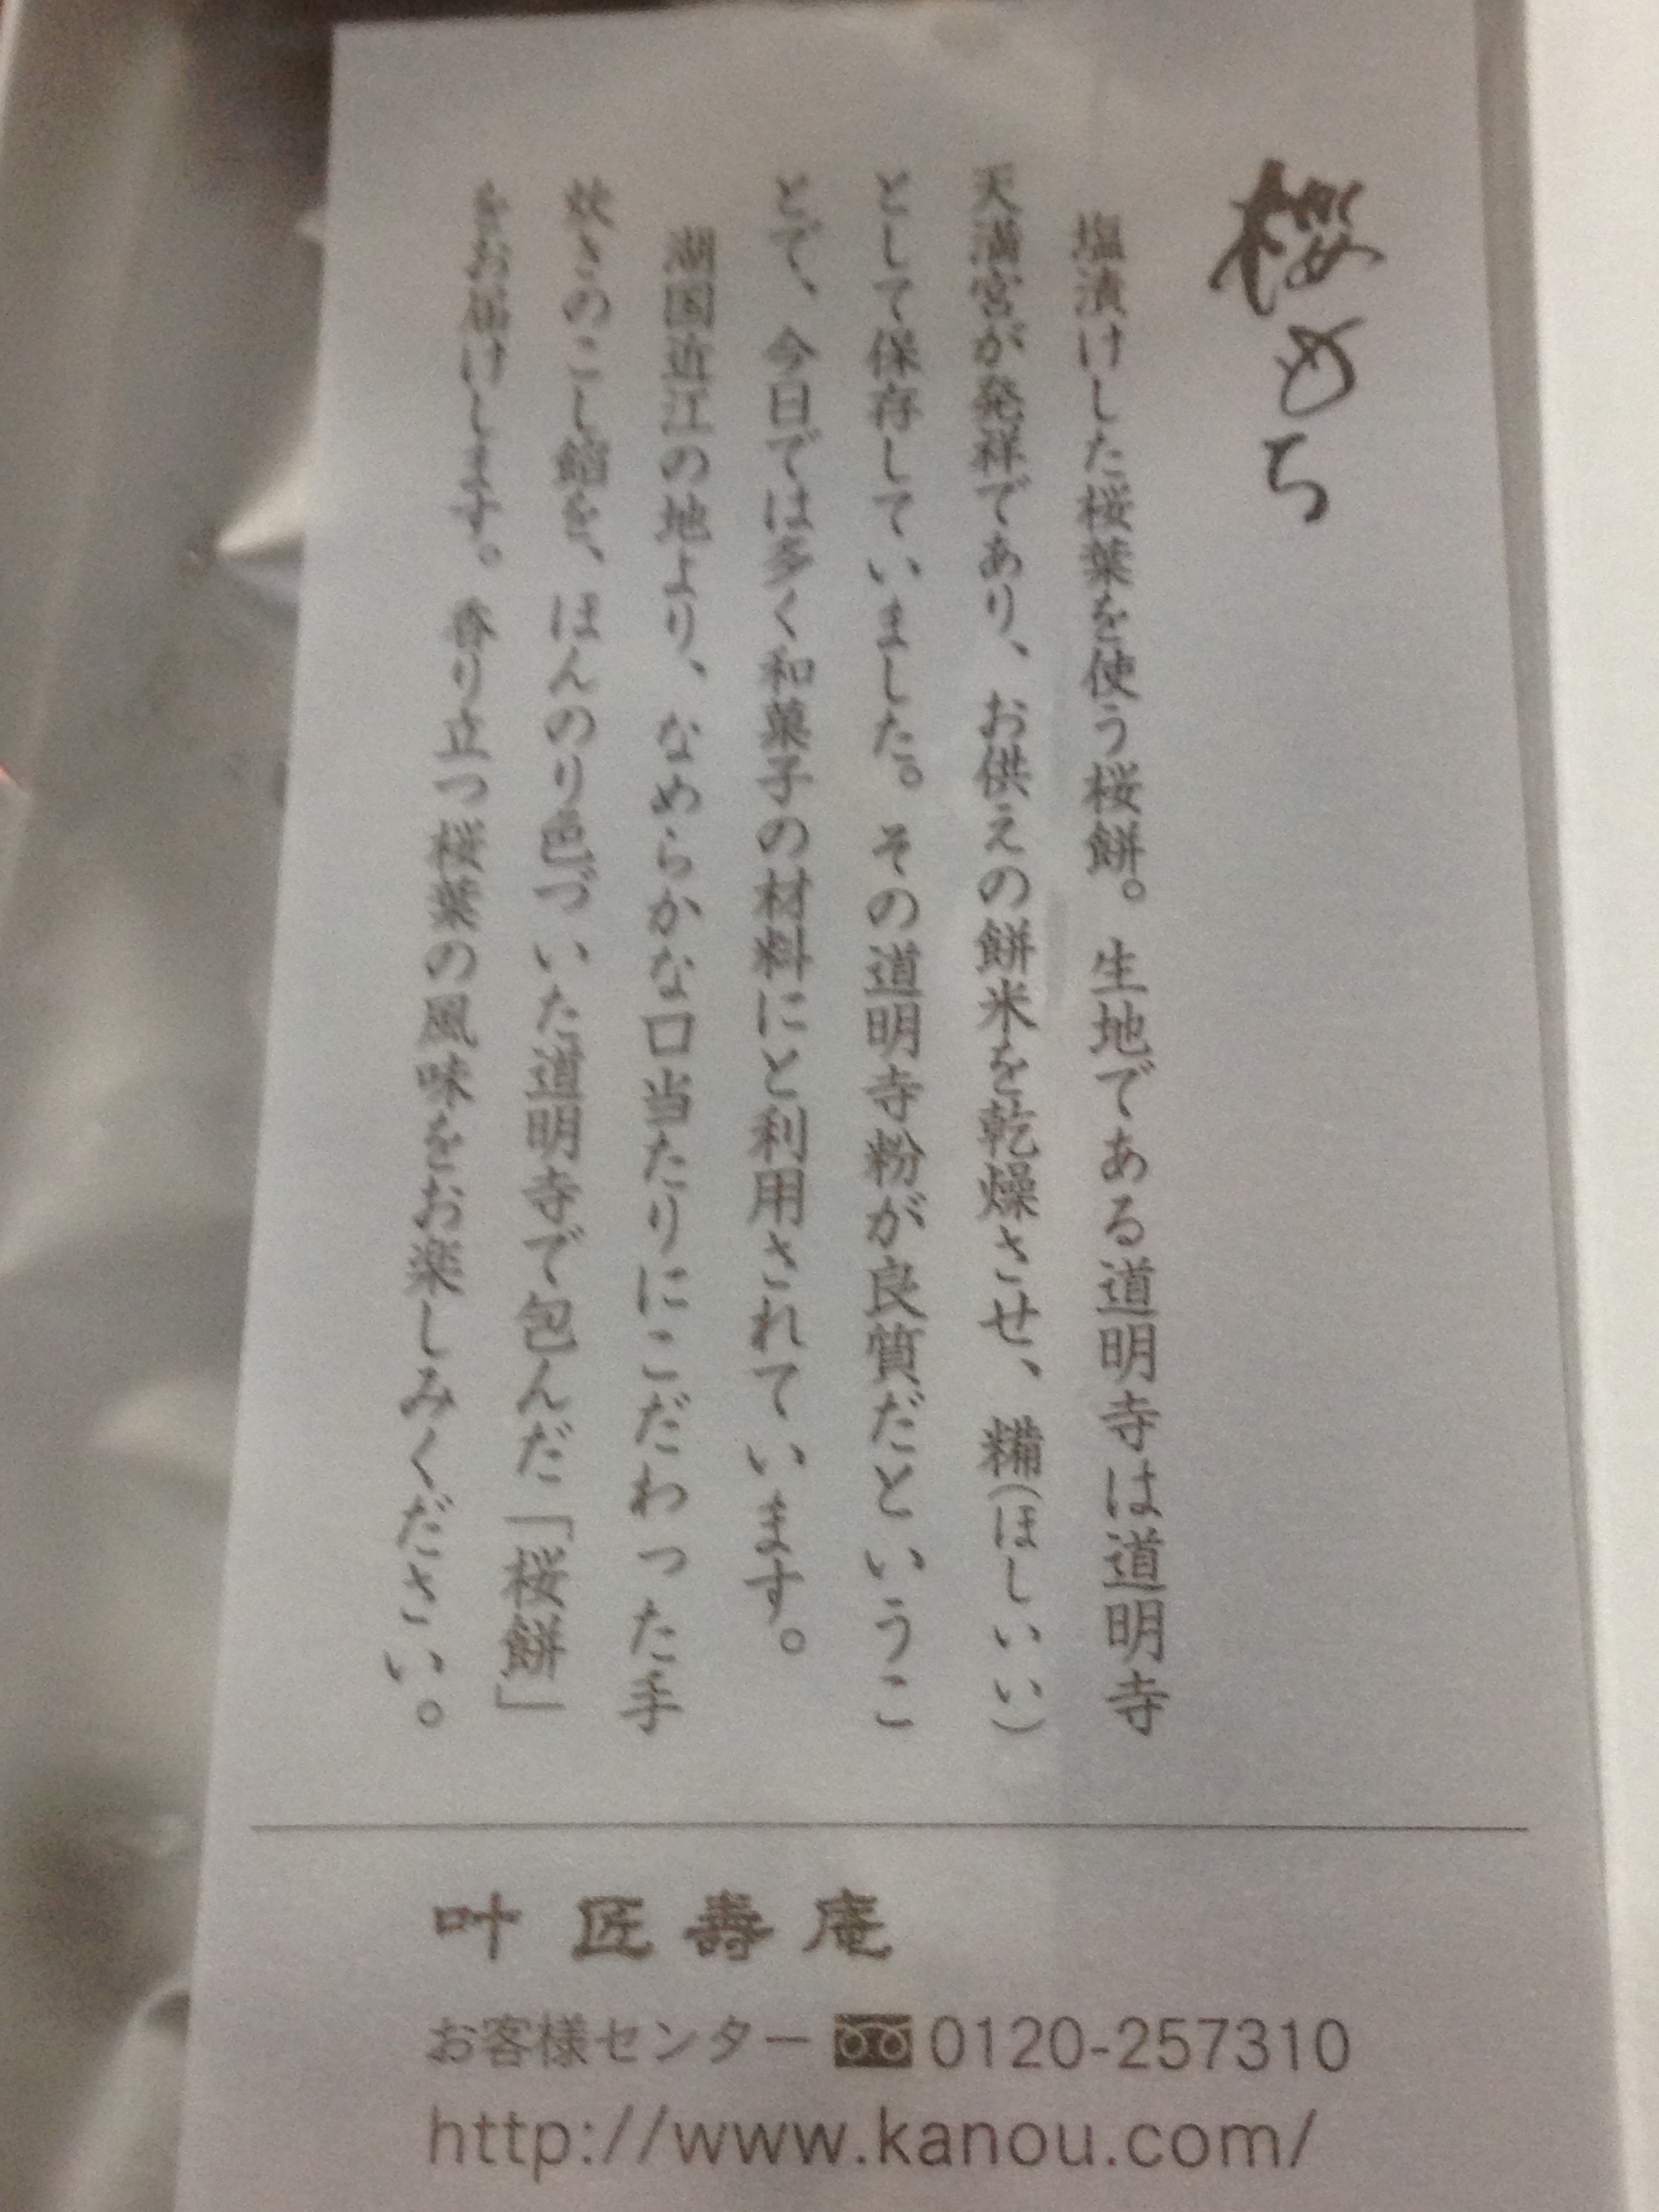 桜もち
塩漬けした桜葉を使う桜餅。生地である道明寺は道明寺
天満宮が発祥であり、お供えの餅米を乾燥させ、糒(ほしいい)
として保存していました。その道明寺粉が良質だというこ
とで、今日では多く和菓子の材料にと利用されています。
湖国近江の地より、なめらかな口当たりにこだわった手
炊きのこし餡を、ほんのり色づいた道明寺で包んだ「桜餅」
をお届けします。香り立つ桜葉の風味をお楽しみください。
叶 匠 壽 庵
お客様センター 0120-257310
http://www.kanou.com/